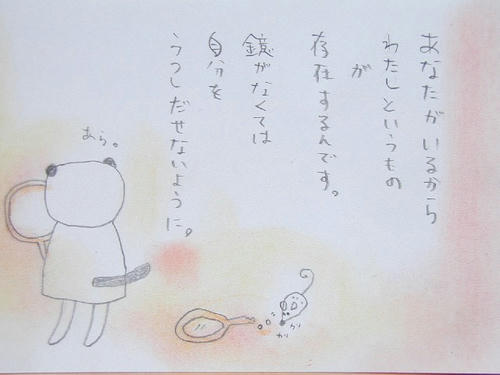 あなたがいるから
わたしというもの
が
存在するんです。
鏡がなくては
自分を
うつしだせないように。
あら。
カリ
カリ